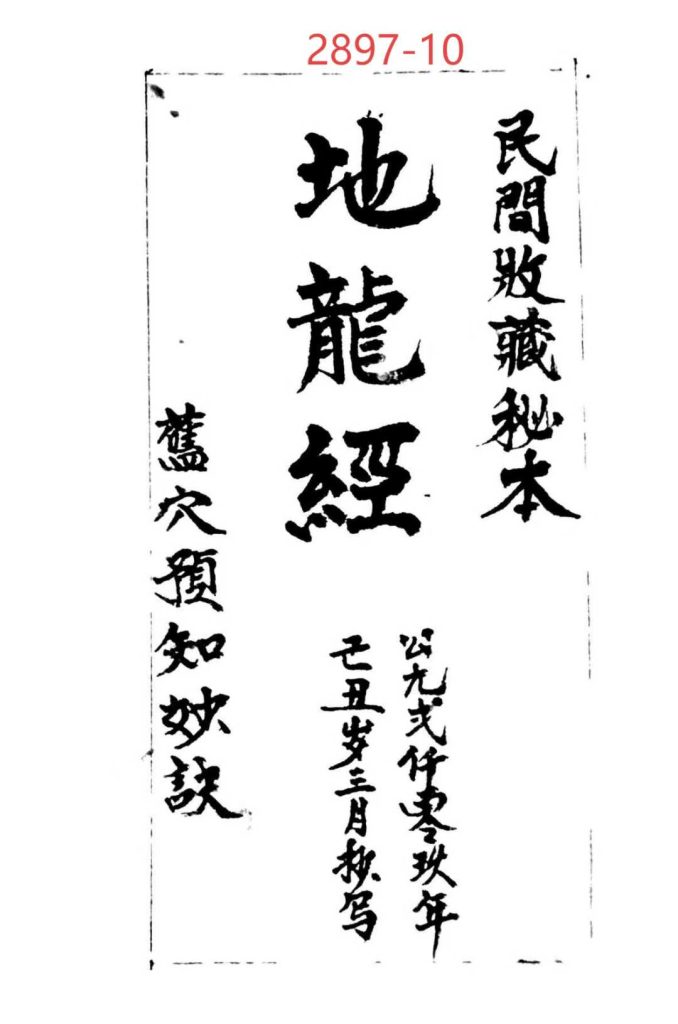 2897-10
民間收藏秘本
地龍經
公元弍仟零玖年
己丑岁三月抄写
舊穴預知妙訣